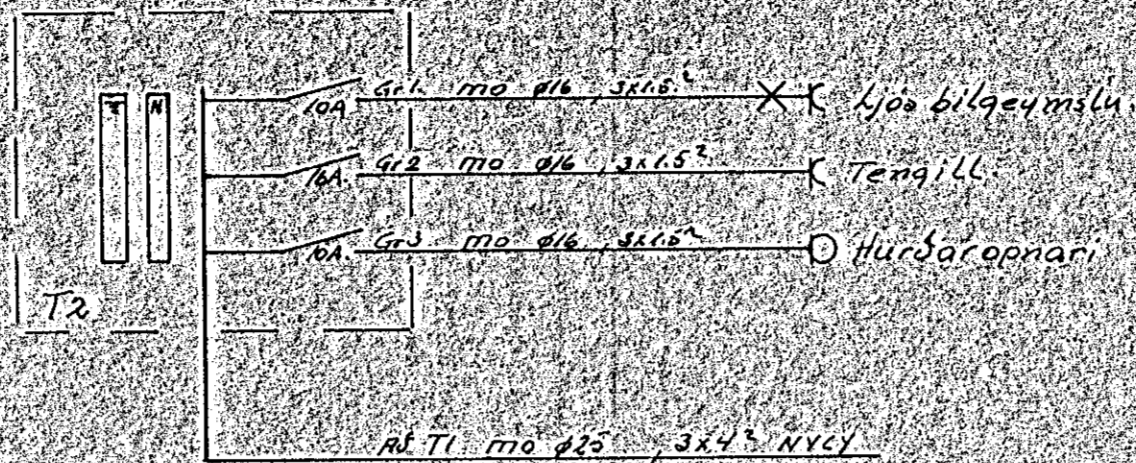 Gr1. mo ø16, 3x1.5² Ljós bílgeymslu.
10A
N
Gr2 mo ø16, 3x1.5² Tengill.
16A.
Gr3 mo ø16, 3x1.5² Hurðaropnari
10A.
T2
Að T1 mo ø25, 3x4² NYCY